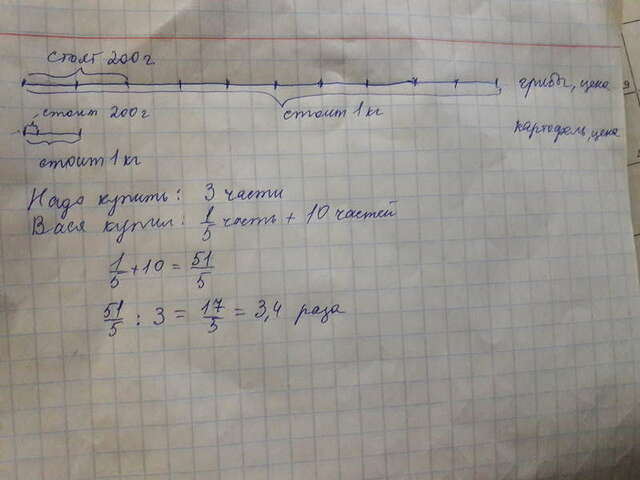 стоят 200 г
грибы, цена
стоит 200 г
стоит 1 кг
картофель, цена
стоит 1 кг
Надо купить: 3 части
Вася купил: 1/5 часть + 10 частей
1/5 + 10 = 51/5
51/5 : 3 = 17/5 = 3,4 раза